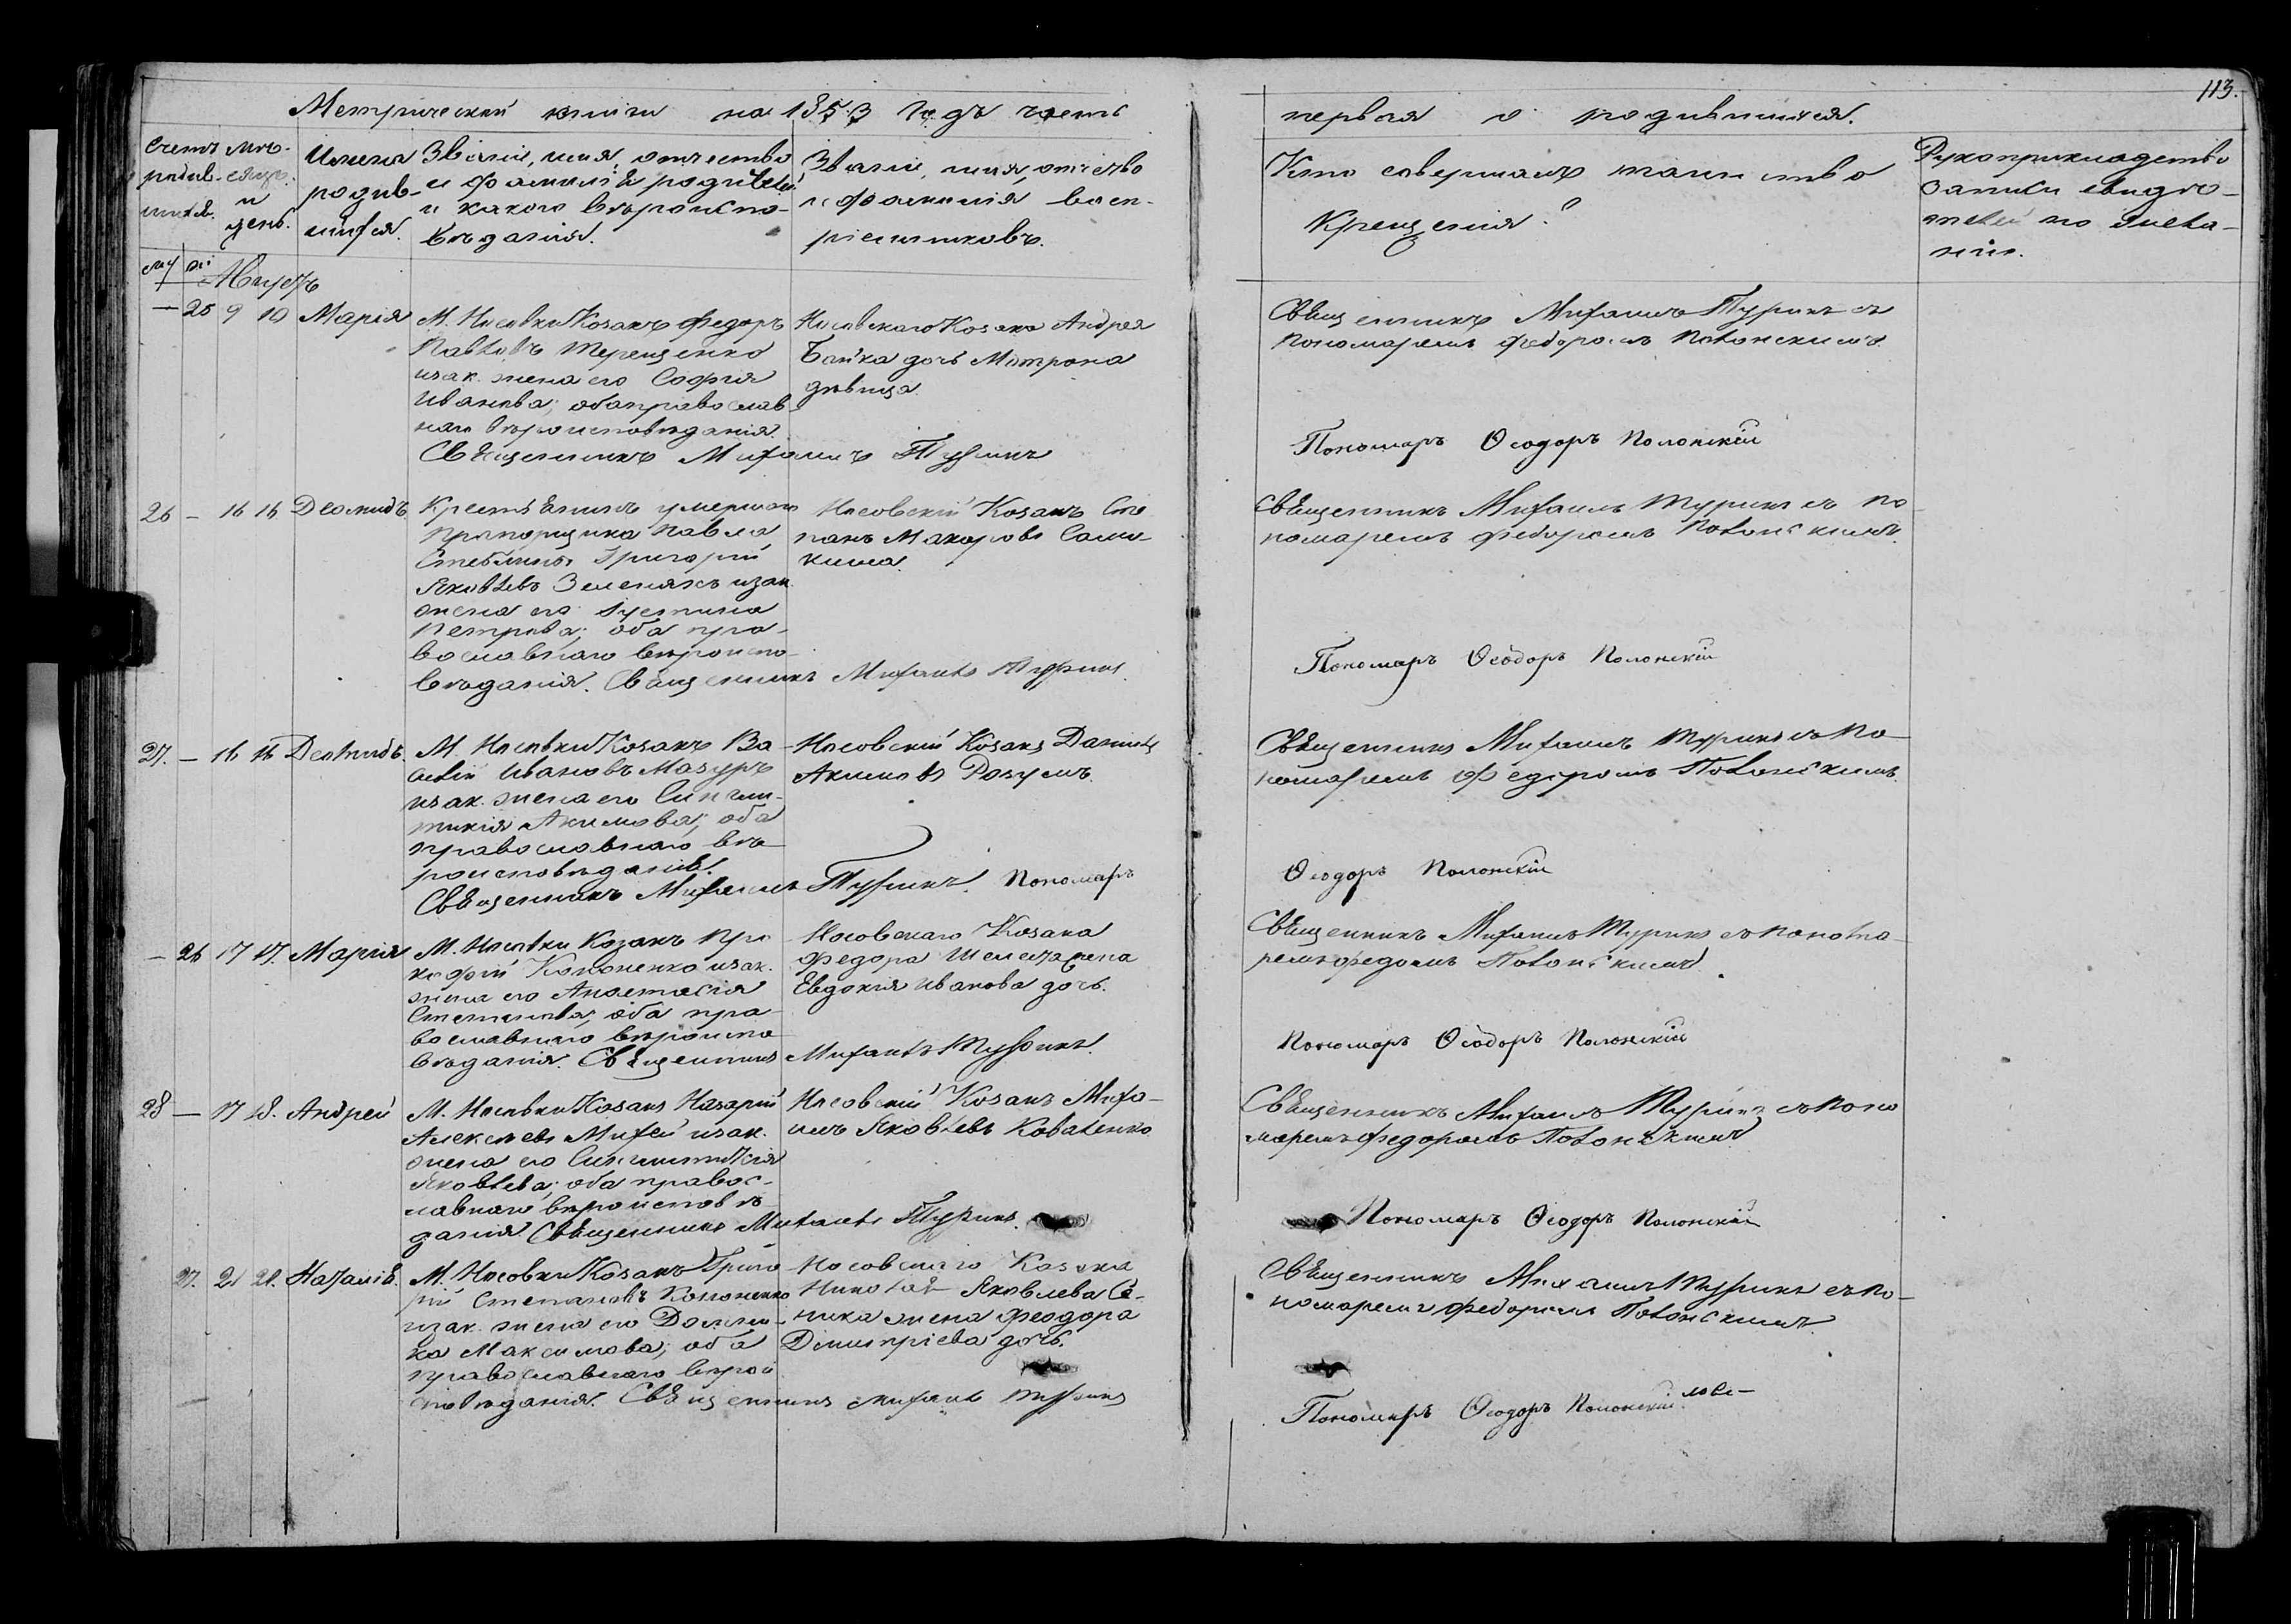 113.
Метрической книги на 1853 годъ часть
первая о родившихся.
Счетъ родив-
шихся.
Мѣ-
сяцъ
и
день.
Имена
родив-
шихся.
Званіе, имя, отчество
и фамилія родителей,
и какого вѣроиспо-
вѣданія.
Званіе, имя, отчество
и фамилія восп-
ріемниковъ.
Кто совершалъ таинство
Крещенія?
Рукоприкладство
записи свидѣ-
телей по жела-
нію.
Августъ
— 25 9 10 Марія
М. Носовки Козакъ Федоръ
Павловъ Терещенко
изак. жена его Софія
Иванова; оба православ
наго вѣроисповѣданія.
Священникъ Михаилъ Туринъ
Носовскаго Козака Андрея
Байка дочь Матрона
дѣвица.
Священникъ Михаилъ Туринъ съ
Пономаремъ Федоромъ Полонскимъ.
Пономарь Ѳеодоръ Полонскій
26 — 16 16 Деомидъ.
Крестьянинъ умершаго
Прапорщика Павла
Григорій
Яковлевъ Зеленякъ изак.
жена его Іустина
Петрова; оба пра-
вославнаго вѣроиспо-
вѣданія. Священникъ Михаилъ Туринъ.
Носовскій Козакъ Сте
панъ Макаровъ
Священникъ Михаилъ Туринъ съ По
номаремъ Федоромъ Полонскимъ.
Пономарь Ѳеодоръ Полонскій
27. — 16 16 Деомидъ.
М. Носовки Козакъ Ва-
силій Ивановъ Мазуръ
изак. жена его Синкли-
тикія Акимова; оба
православнаго вѣ-
роисповѣданія.
Священникъ Михаилъ Туринъ. Пономарь
Носовскій Козакъ Даніилъ
Акимовъ Розумъ.
Священникъ Михаилъ Туринъ съ По-
номаремъ Федоромъ Полонскимъ.
Ѳеодоръ Полонскій
— 26 17 17. Марія
М. Носовки Козакъ Про
кофій Кононенко изак.
жена его Анастасія
Степанова; оба пра-
вославнаго вѣроиспо
вѣданія. Священникъ Михаилъ Туринъ.
Носовскаго Козака
Федора
Евдокія Иванова дочь.
Священникъ Михаилъ Туринъ съ Понома-
ремъ Федомъ Полонскимъ.
Пономарь Ѳеодоръ Полонскій
28 — 17 18. Андрей
М. Носовки Козакъ Назарій
Алексѣевъ Михей изак.
жена его Синклитикія
Яковлева; оба правос-
лавнаго вѣроисповѣ
данія Священникъ Михаилъ Туринъ.
Носовскій Козакъ Миха-
илъ Яковлевъ Коваленко
Священникъ Михаилъ Туринъ съ Поно
маремъ Федоромъ Полонскимъ
Пономарь Ѳеодоръ Полонскій
27. 21 21. Наталія.
М. Носовки Козакъ Григо
рій Степановъ Кононенко
изак. жена его Домни-
ка Максимова; оба
православнаго вѣрои
сповѣданія. Священникъ Михаилъ Туринъ
Носовскаго Козака
Николая Яковлева Се-
ника жена Феодора
Димитріева дочь.
Священникъ Михаилъ Туринъ съ По-
номаремъ Федоромъ Полонскимъ.
Пономарь Ѳеодоръ Полонскій